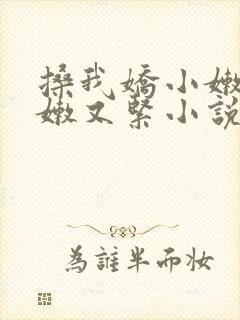 搡我嬌小嫩
嫩又緊小說
為誰半而妝